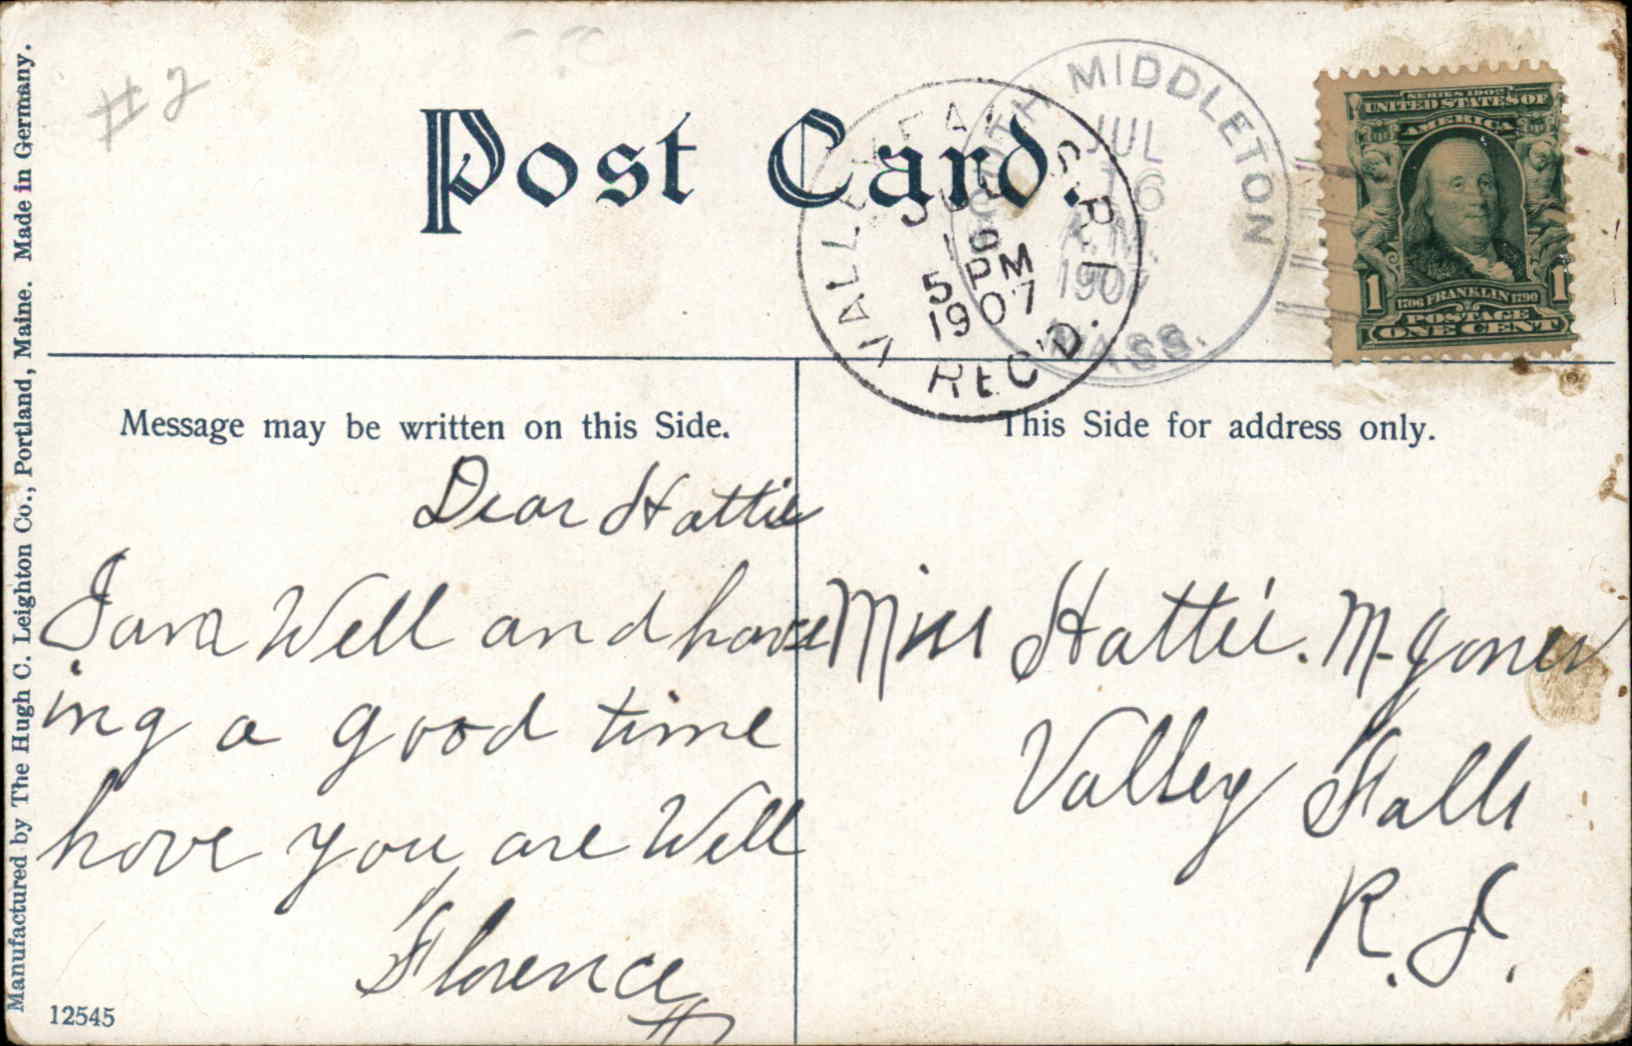 # 2
Post Card.
SOUTH MIDDLETON
JUL
16
A.M.
1907
MASS.
VALLEY FALLS. R.I.
JUL
16
5 PM
1907
REC'D.
SERIES 1902
UNITED STATES OF
AMERICA
1706 FRANKLIN 1790
1 1
POSTAGE
ONE CENT
Manufactured by The Hugh C. Leighton Co., Portland, Maine. Made in Germany.
Message may be written on this Side.
This Side for address only.
Dear Hattie
I am Well and have
ing a good time
hove you are Well
Florence
Miss Hattie. M. Jones
Valley Falls
R. I.
12545